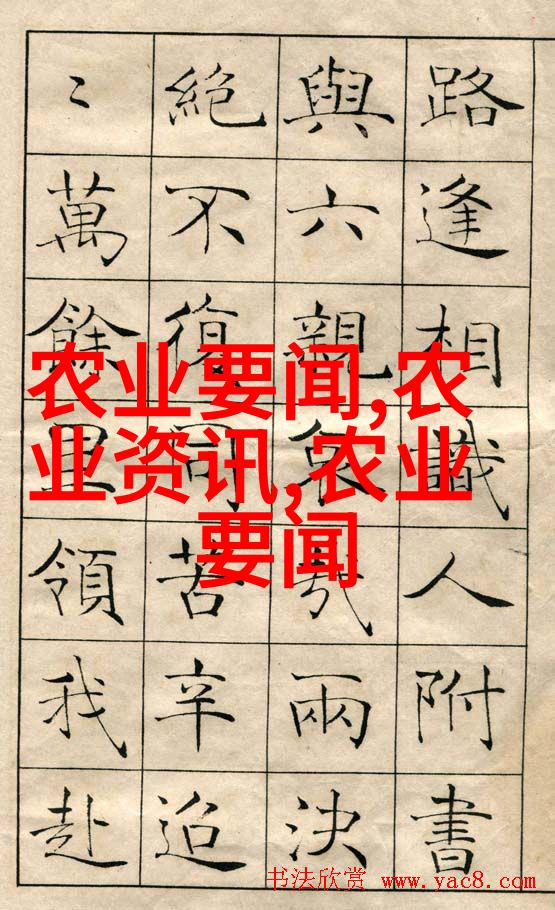 路逢相識人附書
與六親哀哉兩決
絕不復同苦辛迢
〻萬餘里領我赴
农业要闻,农
业资讯,农业
要闻
书法欣赏 www.yac8.com